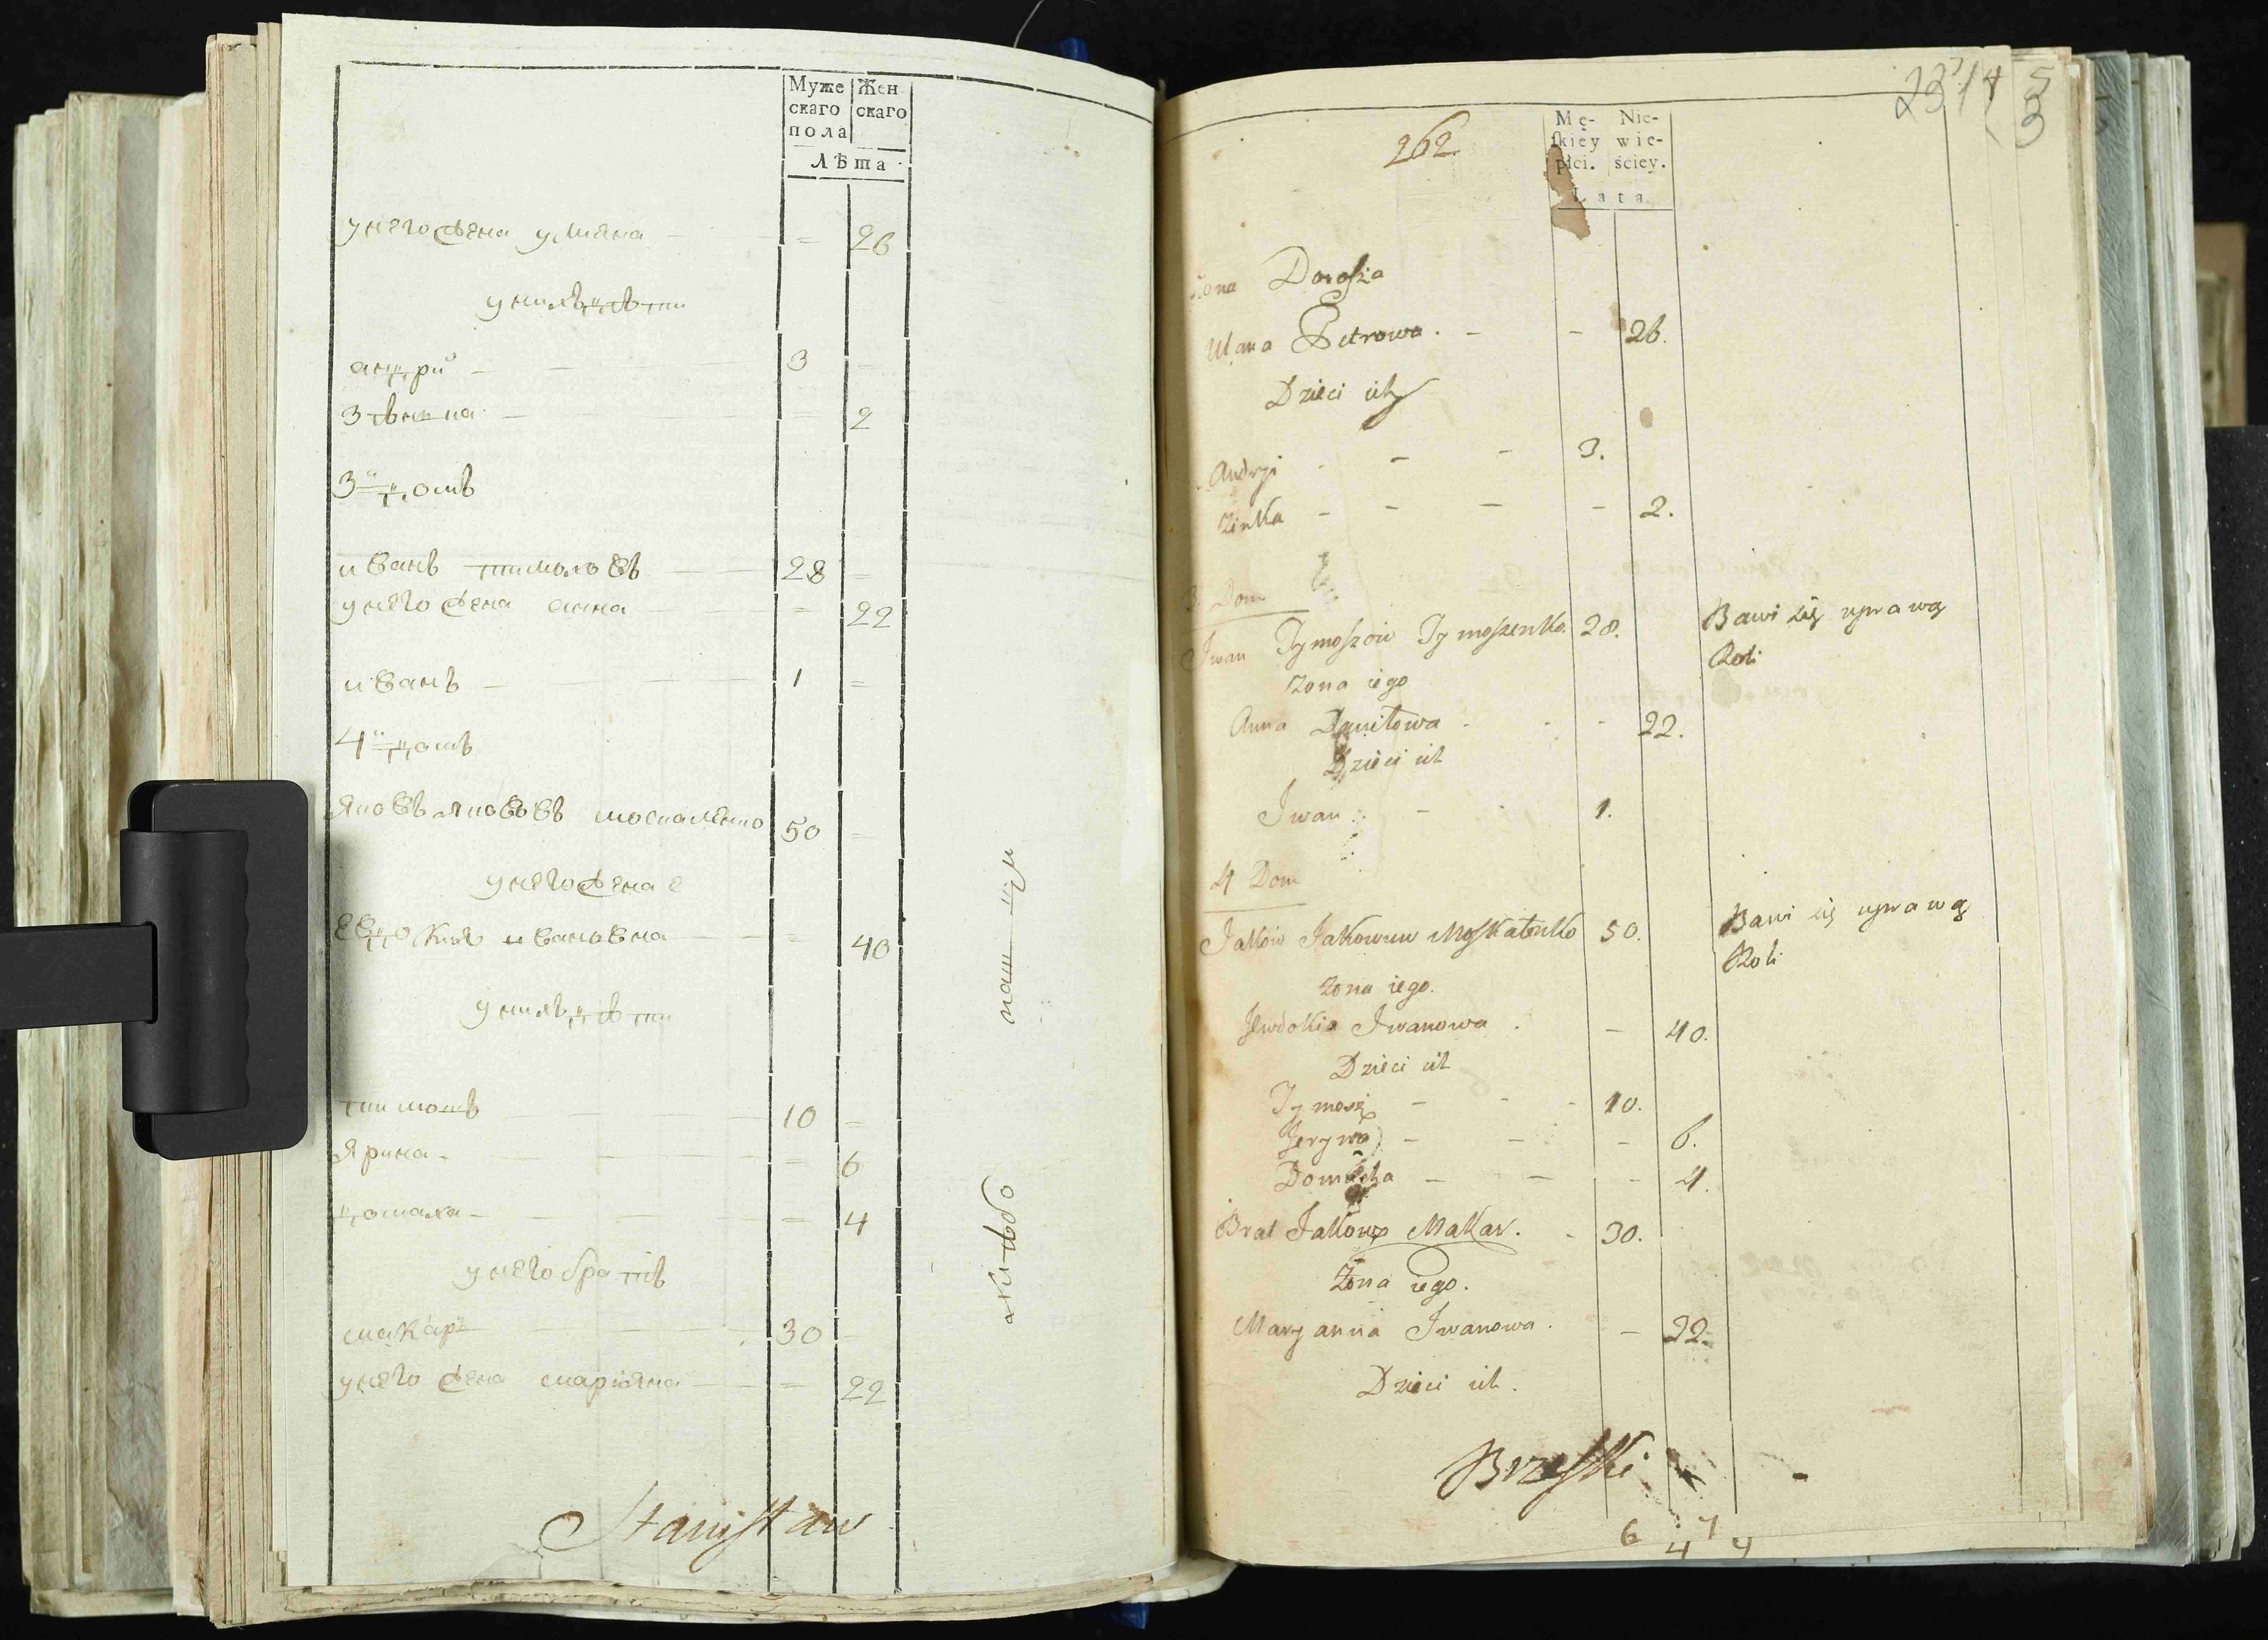 Муже Жен
скаго скаго
пола
Лѣта
у него жена уляна - = 26
у нихъ дѣти
андрй - 3 -
зѣнка - = 2
3й домъ
иванъ тимоховъ - 28 -
у него жена анна - = 22
иванъ - 1 =
4й домъ
яковъ яковлевъ москаленко 50 -
у него жена
евдокия ивановна - = 40
у нихъ дѣти
тимошъ 10 -
ярина - = 6
домаха - = 4
у него братъ
макаръ 30 -
у него жена мариянна - = 22
Stanisław
262
Mę- Nie-
skiéy wie-
płci. ściey.
Lata
żona Dorosza
Ulana Petrowa. - - 26.
Dzieci ich
Andryi - - 3.
Zinka - - - - 2.
3 Dom
Iwan Tymoszow Tymoszenko. 28. Bawi się uprawą
Roli
żona iego
Anna Daniłowa - - - 22.
Dzieci ich
Iwan - - 1.
4 Dom
Jakow Jakowuw Moskalenko 50. Bawi się uprawą
Roli
żona iego.
Jewdokia Iwanowa . - 40.
Dzieci ich
Tymosz - - - 10.
Jeryna - - - 6.
Domacha - - - 4.
Brat Jakowa Makar. - 30.
Żona iego.
Maryanna Iwanowa. - 22.
Dzieci ich.
Brzeski
6 4